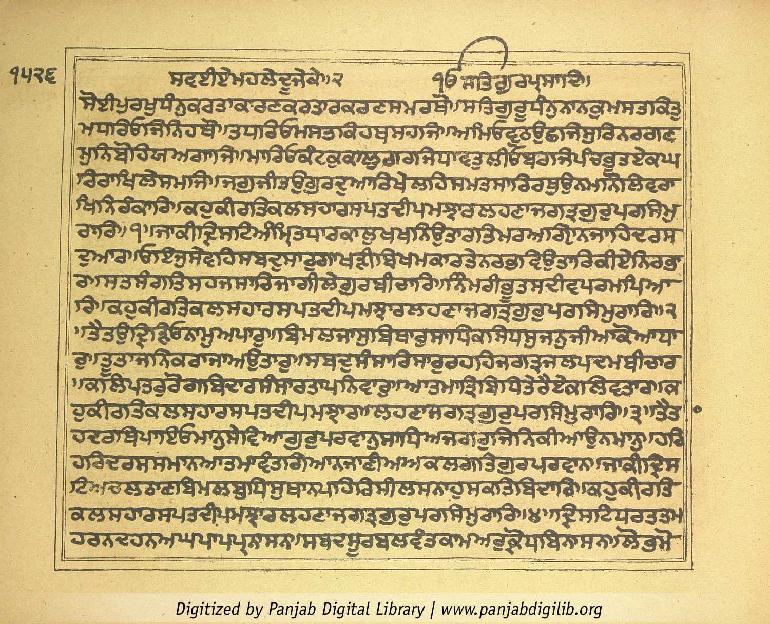 ੧੫੨੬
ਸਵਈਏ ਮਹਲੇ ਦੂਜੇ ਕੇ ॥ ੨ ੴ ਸਤਿਗੁਰਪ੍ਰਸਾਦਿ ॥
ਸੋਈਪੁਰਖੁਧੰਨੁਕਰਤਾਕਾਰਣਕਰਤਾਰੁਕਰਣਸਮਰਥੋ॥ਸਤਿਗੁਰੂਧੰਨੁਨਾਨਕੁਮਸਤਕਿਤੁ
ਮਧਾਰਿਓਜਿਨਿਹਥੋ॥ਤਧਾਰਿਓਮਸਤਕਿਹਥੁਸਹਜਿਅਮਿਓਵੁਠਉਛਜਿਸੁਰਿਨਰਗਣ
ਮੁਨਿਬੋਹਿਯਅਗਾਜਿ॥ਮਾਰਿਓਕੰਟਕੁਕਾਲੁਗਰਜਿਧਾਵਤੁਲੀਓਬਰਜਿਪੰਚਭੂਤਏਕਘ
ਰਿਰਾਖਿਲੇਸਮਜਿ॥ਜਗੁਜੀਤਉਗੁਰਦੁਆਰਿਖੇਲਹਿਸਮਤਸਾਰਿਰਥੁਉਨਮਨਿਲਿਵਰਾ
ਖਿਨਿਰੰਕਾਰਿ॥ਕਹੁਕੀਰਤਿਕਲਸਹਾਰਸਪਤਦੀਪਮਝਾਰਲਹਣਾਜਗਤ੍ਰਗੁਰੁਪਰਸਿਮੁ
ਰਾਰਿ॥੧॥ਜਾਕੀਦ੍ਰਿਸਟਿਅੰਮ੍ਰਿਤਧਾਰਕਾਲੁਖਖਨਿਉਤਾਰਤਿਮਰਅਗ੍ਯਾਨਜਾਹਿਦਰਸ
ਦੁਆਰ॥ਓਇਜੁਸੇਵਹਿਸਬਦੁਸਾਰੁਗਾਖੜੀਬਿਖਮਕਾਰਤੇਨਰਭਵਉਤਾਰਿਕੀਏਨਿਰਭਾ
ਰ॥ਸਤਸੰਗਤਿਸਹਜਸਾਰਿਜਾਗੀਲੇਗੁਰਬੀਚਾਰਿ॥ਨਿੰਮਰੀਭੂਤਸਦੀਵਪਰਮਪਿਆ
ਰਿ॥ਕਹੁਕੀਰਤਿਕਲਸਹਾਰਸਪਤਦੀਪਮਝਾਰਲਹਣਾਜਗਤ੍ਰਗੁਰੁਪਰਸਿਮੁਰਾਰਿ॥੨
॥ਤੈਤਉਦ੍ਰਿੜਿਓਨਾਮੁਅਪਾਰੁ॥ਬਿਮਲਜਾਸੁਬਿਥਾਰੁਸਾਧਿਕਸਿਧਸੁਜਨਜੀਆਕੋਅਧਾ
ਰੁ॥ਤੂਤਾਜਨਿਕਰਾਜਾਅਉਤਾਰੁ॥ਸਬਦੁਸੰਸਾਰਿਸਾਰੁਰਹਹਿਜਗਤ੍ਰਜਲਪਦਮਬੀਚਾਰ
॥ਕਲਿਪਤਰੁਰੋਗਬਿਦਾਰੁਸੰਸਾਰਤਾਪਨਿਵਾਰੁ॥ਆਤਮਾਤ੍ਰਿਬਿਧਿਤੇਰੈਏਕਲਿਵਤਾਰ॥ਕ
ਹੁਕੀਰਤਿਕਲਸਹਾਰਸਪਤਦੀਪਮਝਾਰਲਹਣਾਜਗਤ੍ਰਗੁਰੁਪਰਸਿਮੁਰਾਰਿ॥੩॥ਤੈਤ
ਹਦਰਥਿਪਾਇਓਮਾਨੁਸੇਵਿਆਗੁਰੁਪਰਵਾਨੁਸਾਧਿਅਜਗਰੁਜਿਨਿਕੀਆਉਨਮਾਨੁ॥ਹਰਿ
ਹਰਿਦਰਸਸਮਾਨਆਤਮਾਵੰਤਗਿਆਨਜਾਣੀਅਅਕਲਗਤਿਗੁਰਪਰਵਾਨ॥ਜਾਕੀਦ੍ਰਿਸ
ਟਿਅਚਲਠਾਣਬਿਮਲਬੁਧਿਸੁਥਾਨਪਹਿਰਿਸੀਲਸਨਾਹੁਸਕਤਿਬਿਦਾਰਿ॥ਕਹੁਕੀਰਤਿ
ਕਲਸਹਾਰਸਪਤਦੀਪਮਝਾਰਲਹਣਾਜਗਤ੍ਰਗੁਰੁਪਰਸਿਮੁਰਾਰਿ॥੪॥ਦ੍ਰਿਸਟਿਧਰਤਤਮ
ਹਰਨਦਹਨਅਘਪਾਪਪ੍ਰਨਾਸਨ॥ਸਬਦਸੂਰਬਲਵੰਤਕਾਮਅਰੁਕ੍ਰੋਧਬਿਨਾਸਨ॥ਲੋਭਮੋ
Digitized by Panjab Digital Library | www.panjabdigilib.org